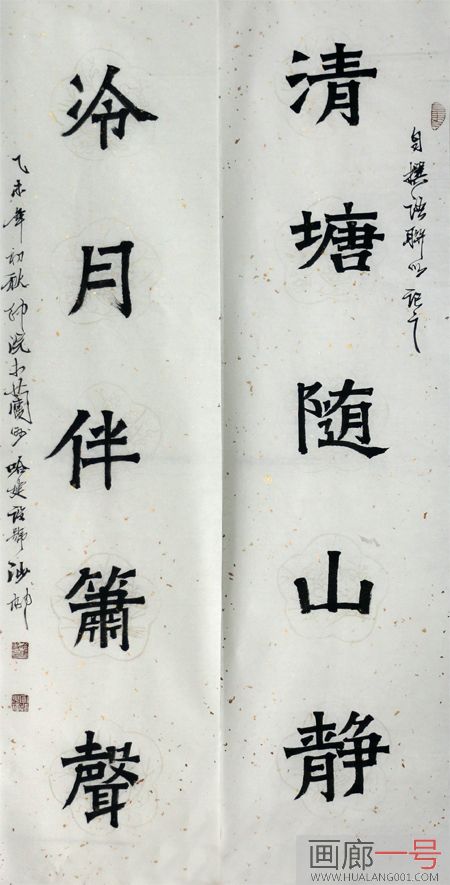 清塘随山静
泠月伴簫聲
自撰语联以记之
乙未年初秋
画廊一号
WWW.HUALANG001.COM